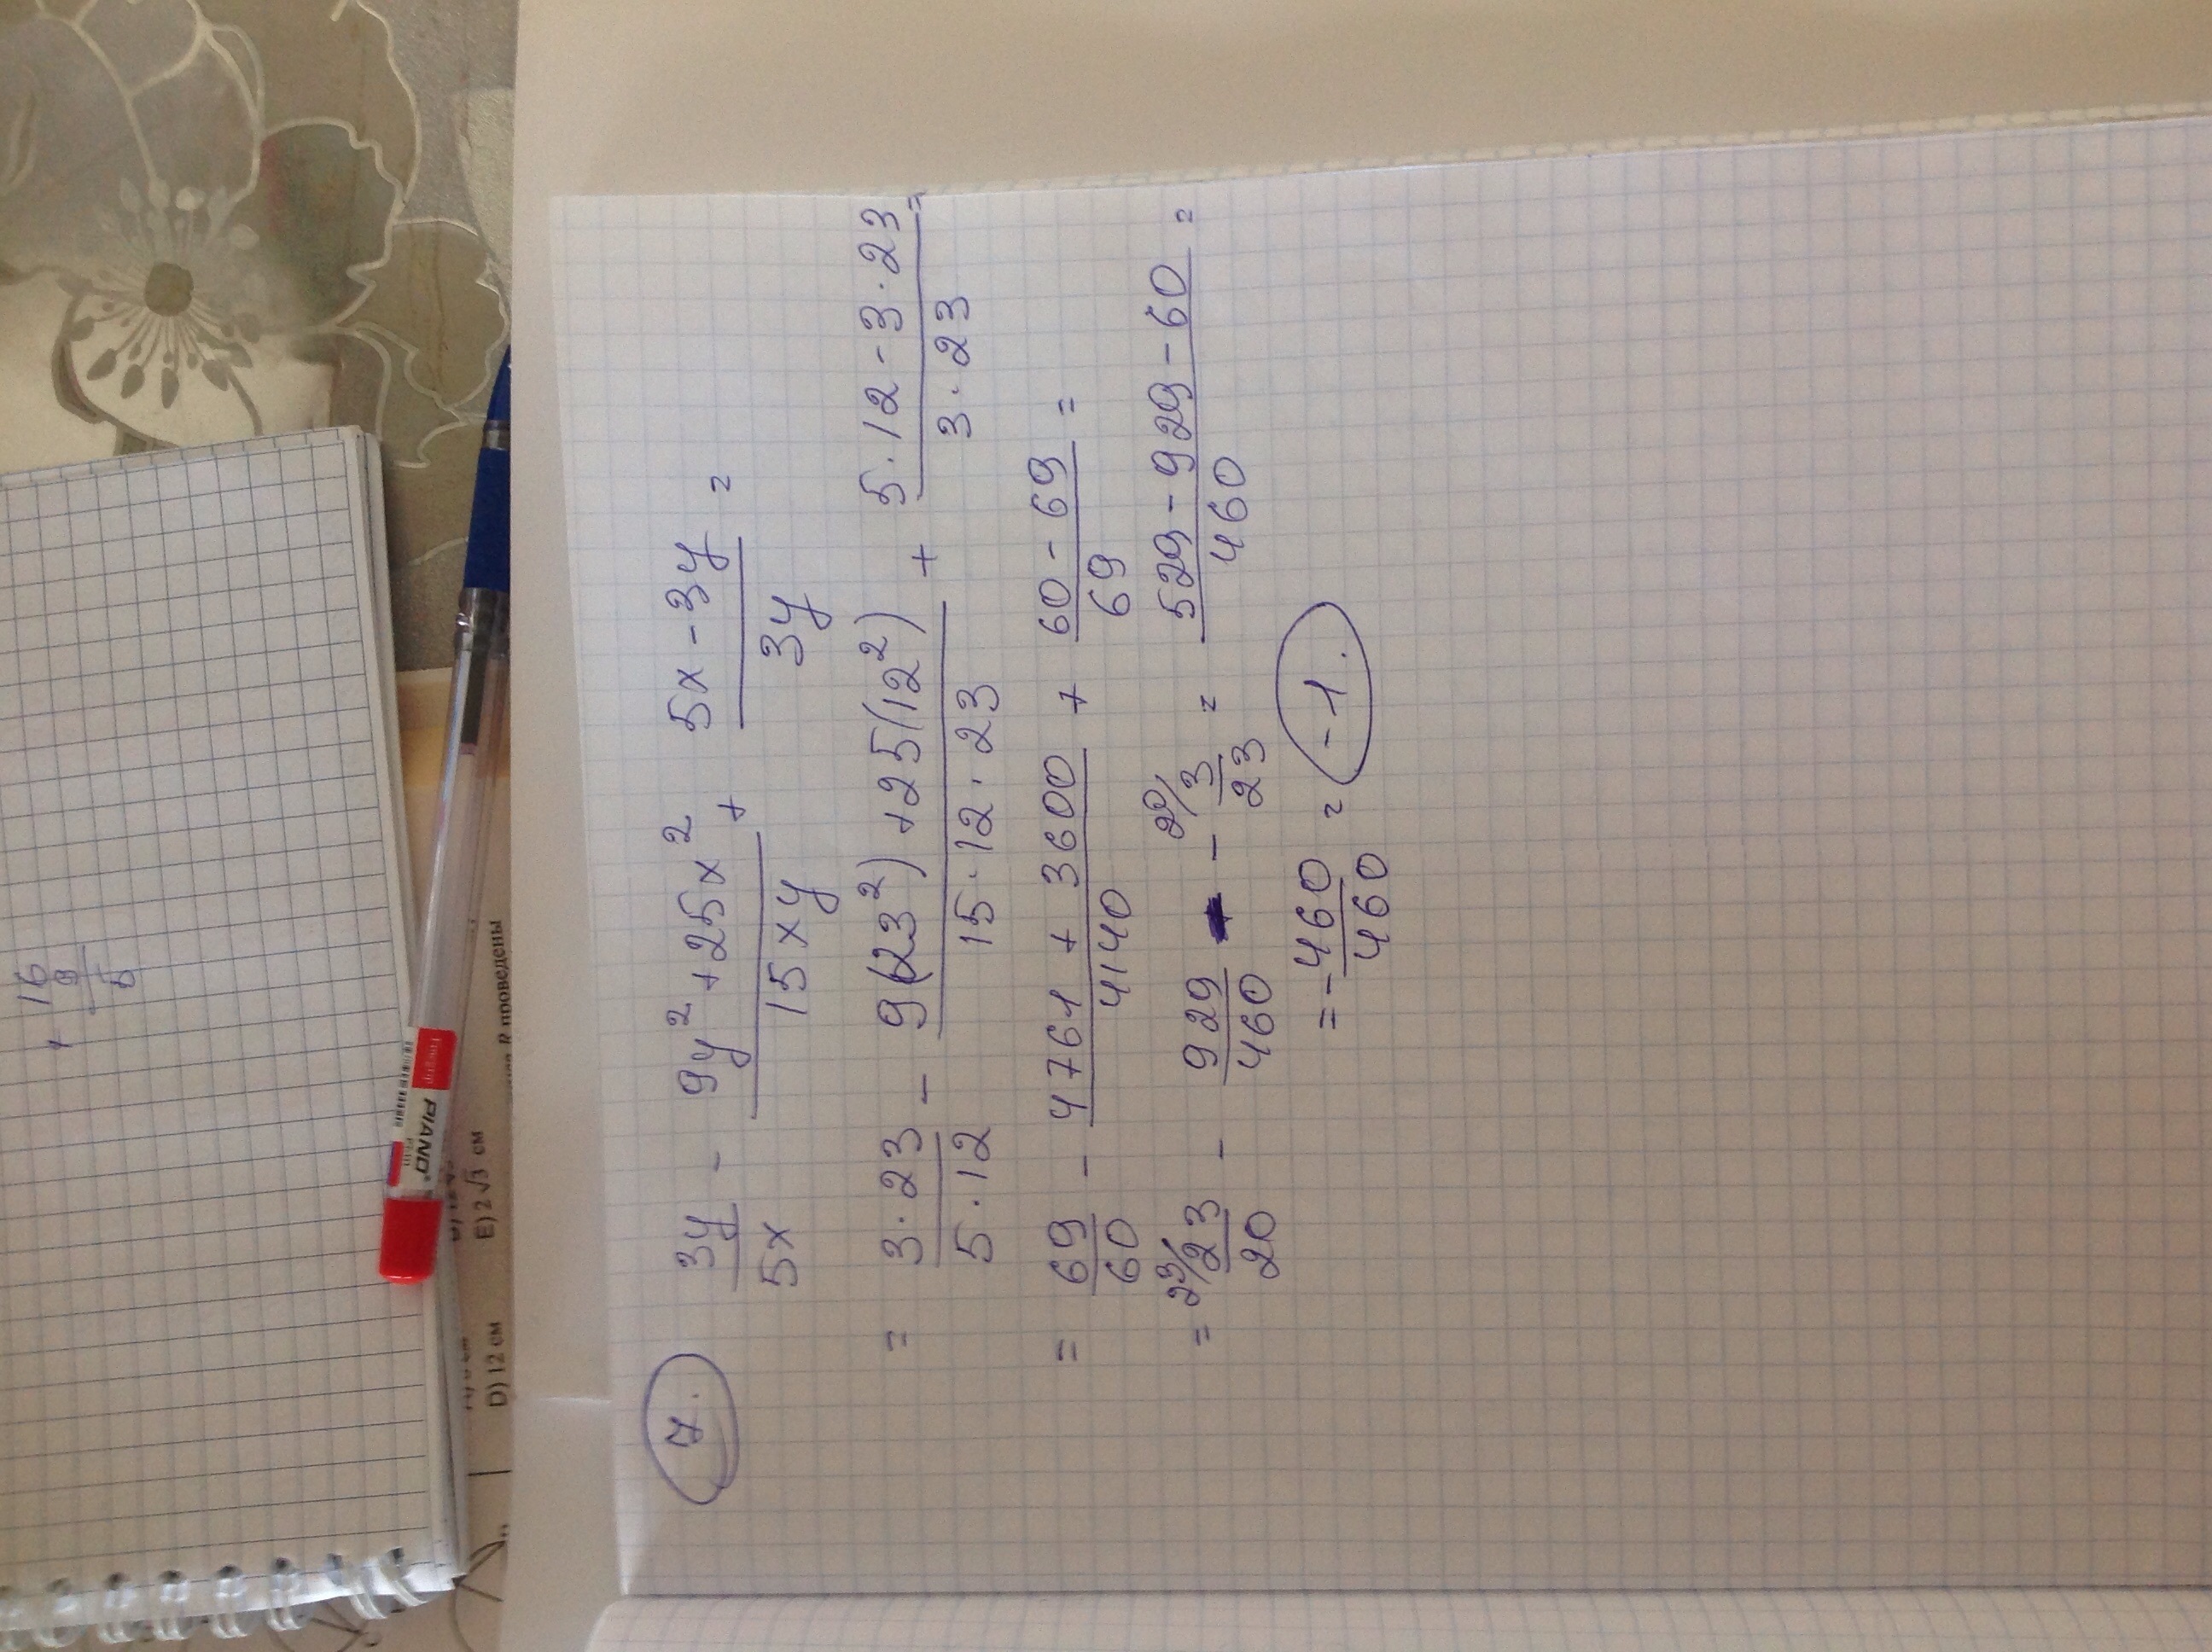 7.
3y/5x - 9y²+25x²/15xy + 5x-3y/3y =
= 3·23/5·12 - 9(23²)+25(12²)/15·12·23 + 5·12-3·23/3·23 =
= 69/60 - 4761+3600/4140 + 60-69/69 =
= 23/ 23/20 - 929/460 - 20/ 3/23 = 529-929-60/460 =
= -460/460 = -1.
PIANO
E) 2√3 см
D) 12 см
проведены